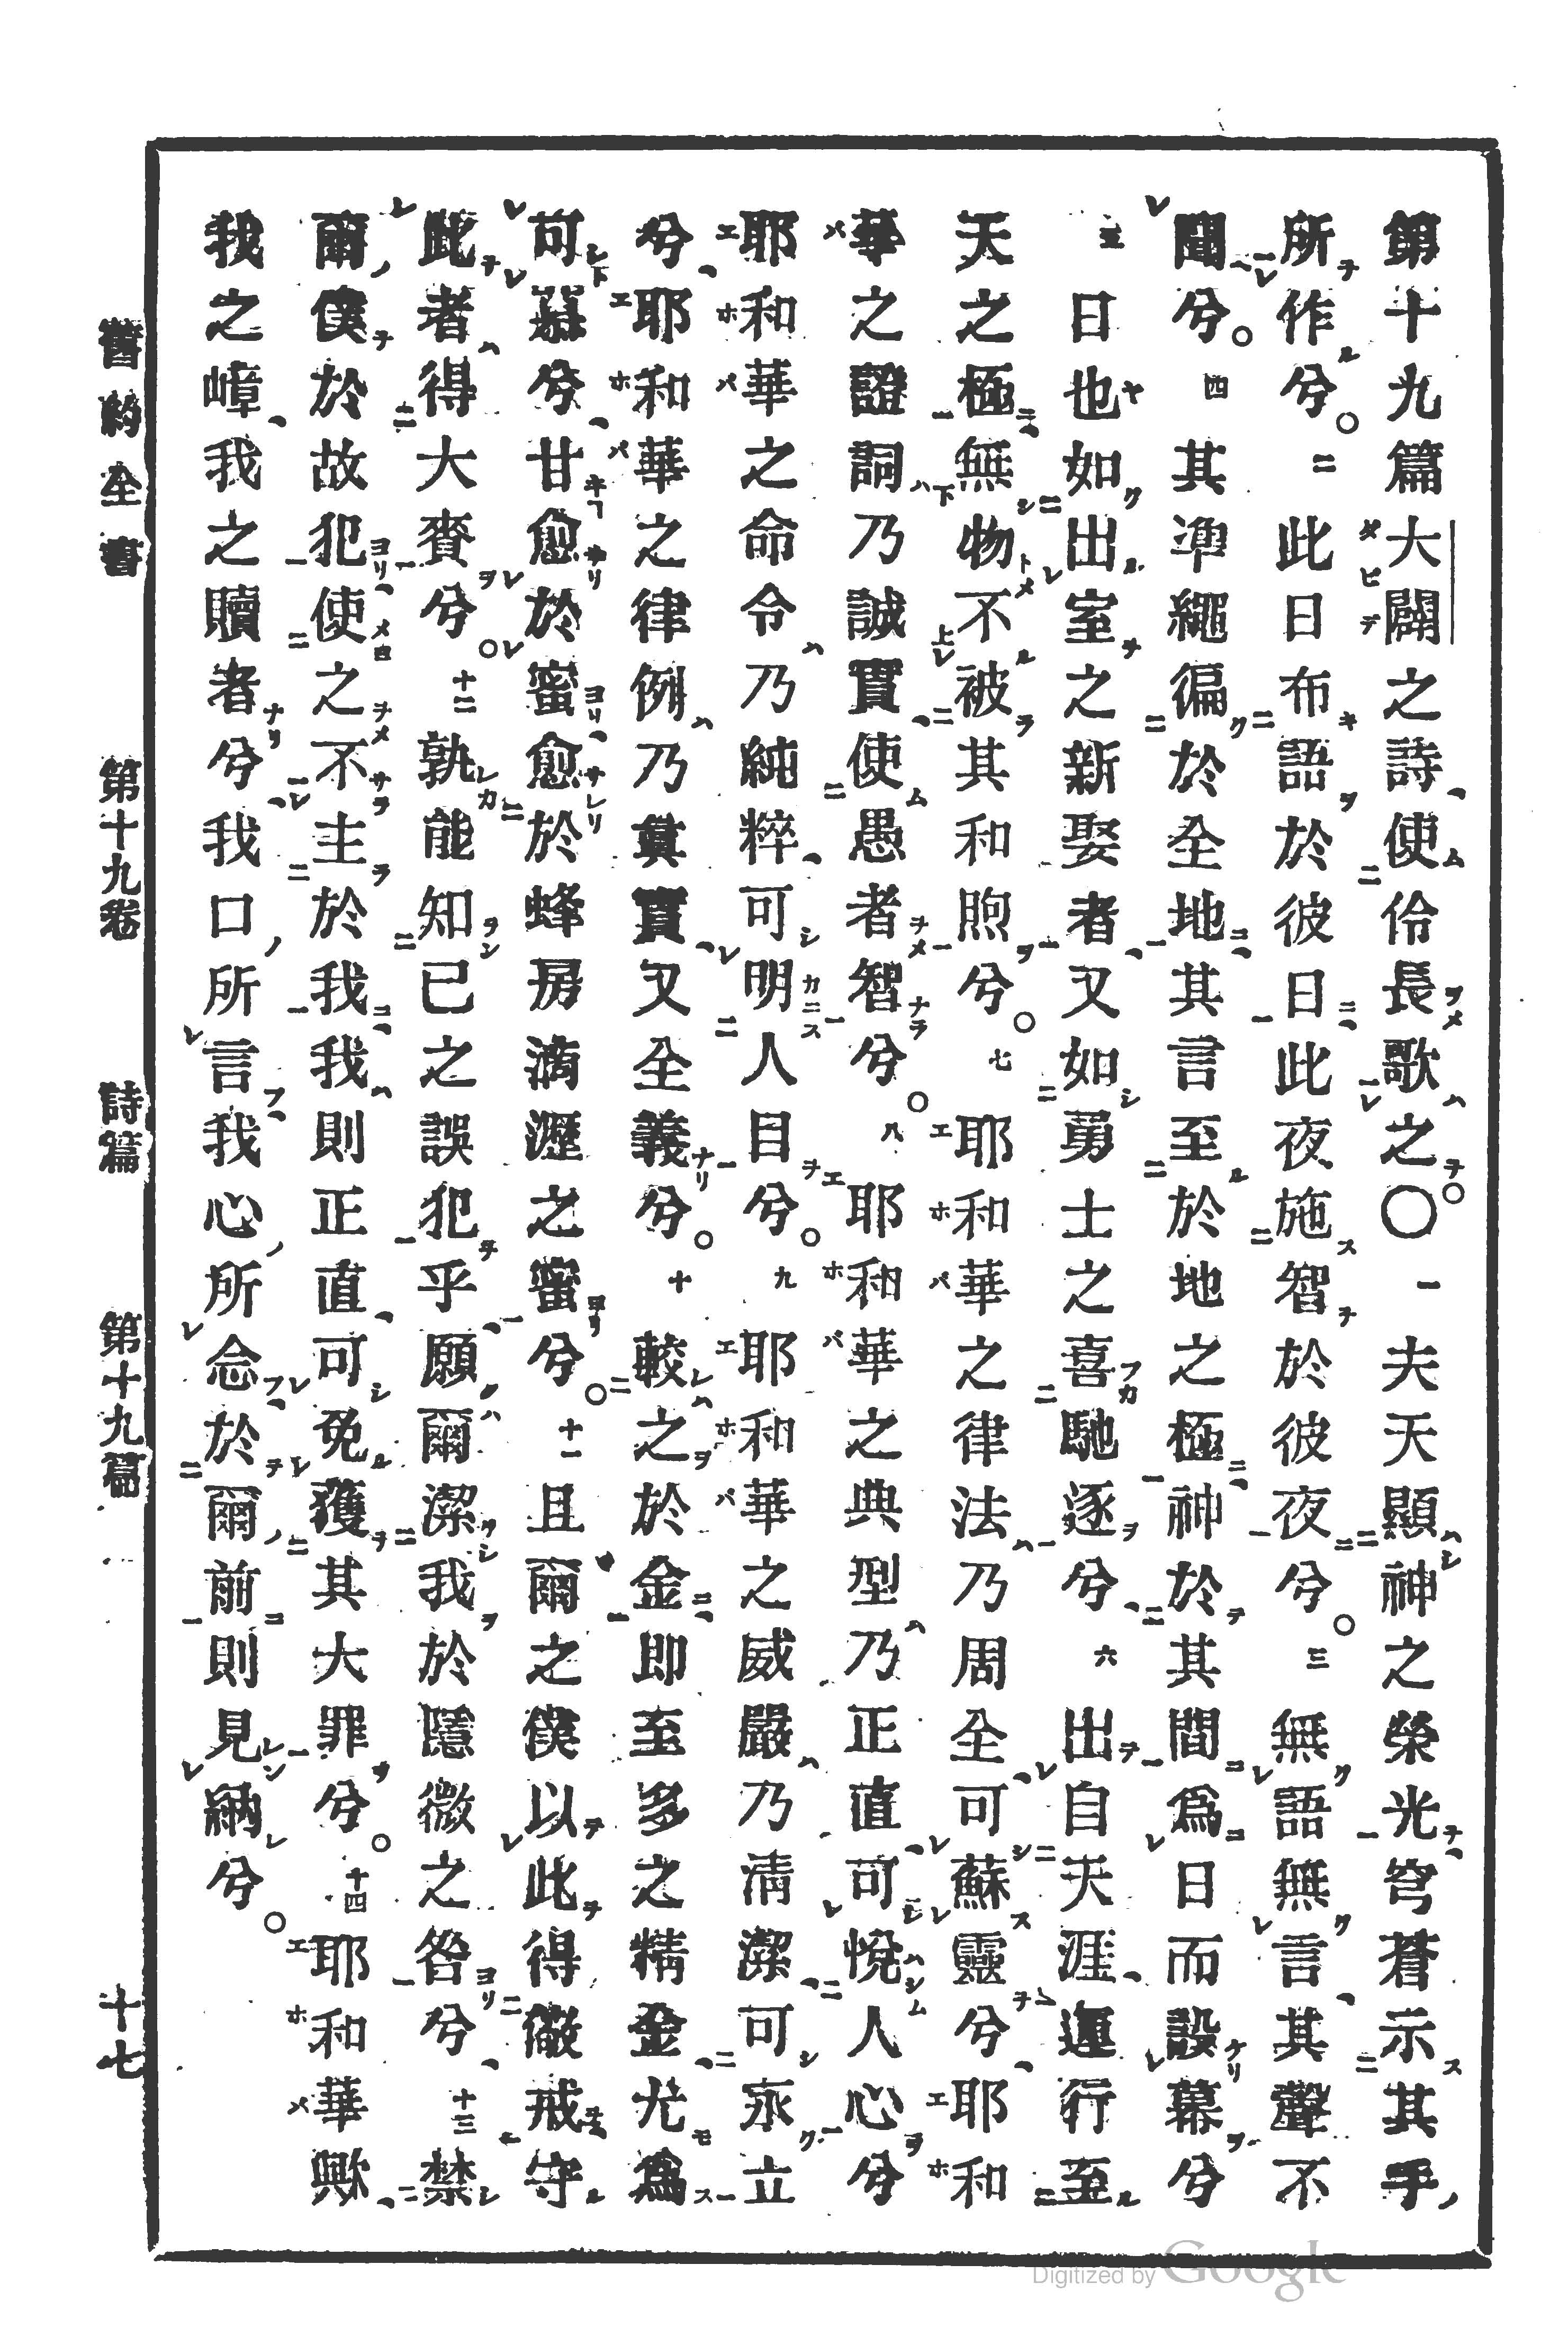 第十九篇大闢之詩使伶長歌之〇一夫天顯神之榮光穹蒼示其手
所作兮。二此日布語於彼日此夜施智於彼夜兮。三無語無言其聲不
聞兮。四其準繩徧於全地其言至於地之極神於其間爲日而設幕兮
五日也如出室之新娶者又如勇士之喜馳逐兮六出自天涯運行至
天之極無物不被其和煦兮。七耶和華之律法乃周全可蘇靈兮耶和
華之證詞乃誠實使愚者智兮。八耶和華之典型乃正直可悅人心兮
耶和華之命令乃純粹可明人目兮。九耶和華之威嚴乃淸潔可永立
兮耶和華之律例乃眞實又全義兮。十較之於金卽至多之精金尤爲
可慕兮甘愈於蜜愈於蜂房滴瀝之蜜兮。十一且爾之僕以此得儆戒守
此者得大賚兮。十二孰能知己之誤犯乎願爾潔我於隱微之咎兮十三禁
爾僕於故犯使之不主於我我則正直可免獲其大罪兮。十四耶和華歟
我之嶂我之贖者兮我口所言我心所念於爾前則見納兮。
舊約全書 第十九卷 詩篇 第十九篇 十七
Digitized by Google